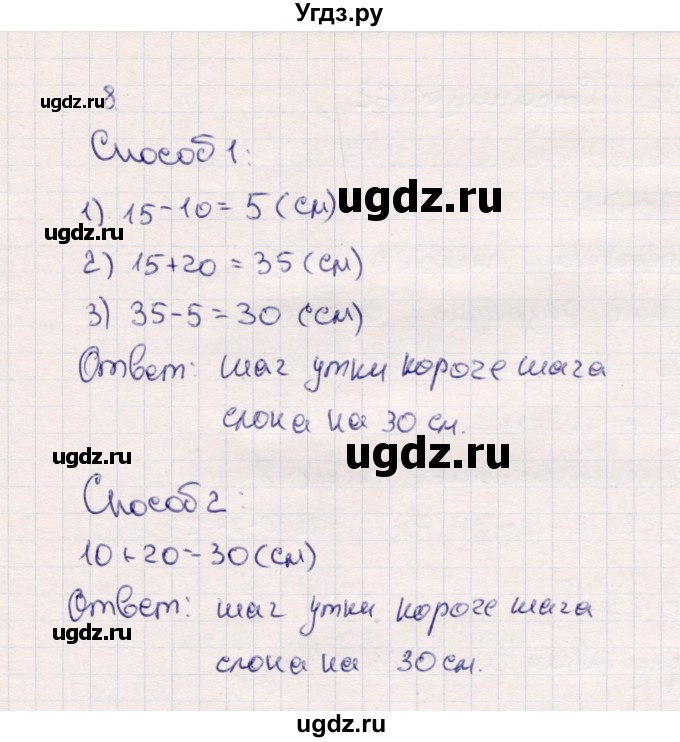 Угдз.ру
8
ugdz.ru
Способ 1:
1) 15-10=5 (см)
ugdz.ru
ugdz.ru
2) 15+20=35 (см)
3) 35-5=30 (см)
Ответ: шаг утки короче шага
слона на 30 см.
ugdz.ru
ugdz.ru
Способ 2:
10+20=30 (см)
Ответ: шаг утки короче шага
ugdz.ru
слона на 30 см.
ugdz.ru